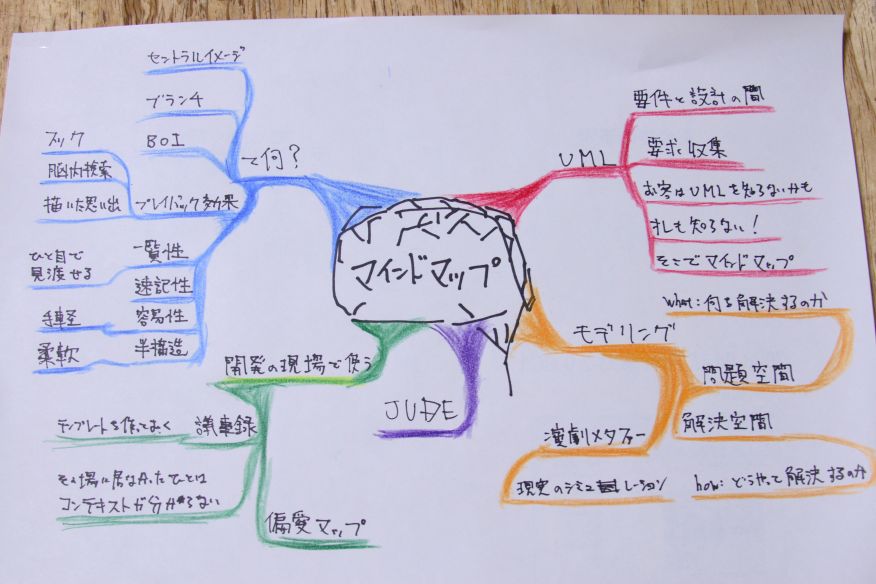 マインドマップ
って何?
セントラルイメージ
ブランチ
BOI
プレイバック効果
フック
脳内検索
描いた思い出
一覧性
ひと目で
見渡せる
速記性
容易性
手軽
半構造
柔軟
UML
要件と設計の間
要求収集
お客はUMLを知らないかも
オレも知らない!
そこでマインドマップ
モデリング
what:何を解決するのか
問題空間
解決空間
how:どうやって解決するのか
演劇メタファー
現実のシミュレーション
JUDE
開発の現場で使う
議事録
テンプレートを作っておく
その場に居なかったひとは
コンテキストが分からない
偏愛マップ